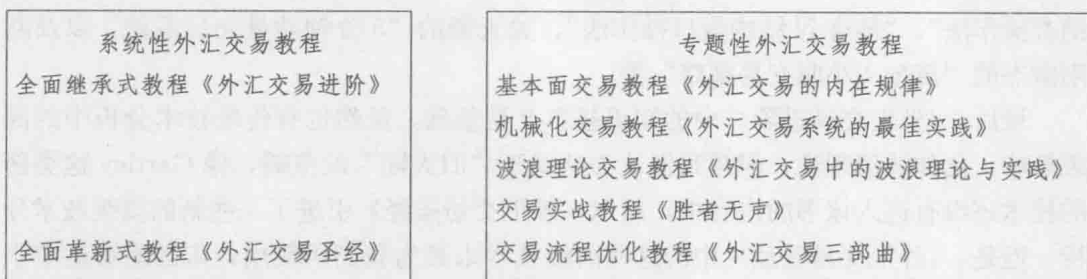 系统性外汇交易教程
全面继承式教程《外汇交易进阶》
全面革新式教程《外汇交易圣经》
专题性外汇交易教程
基本面交易教程《外汇交易的内在规律》
机械化交易教程《外汇交易系统的最佳实践》
波浪理论交易教程《外汇交易中的波浪理论与实践》
交易实战教程《胜者无声》
交易流程优化教程《外汇交易三部曲》